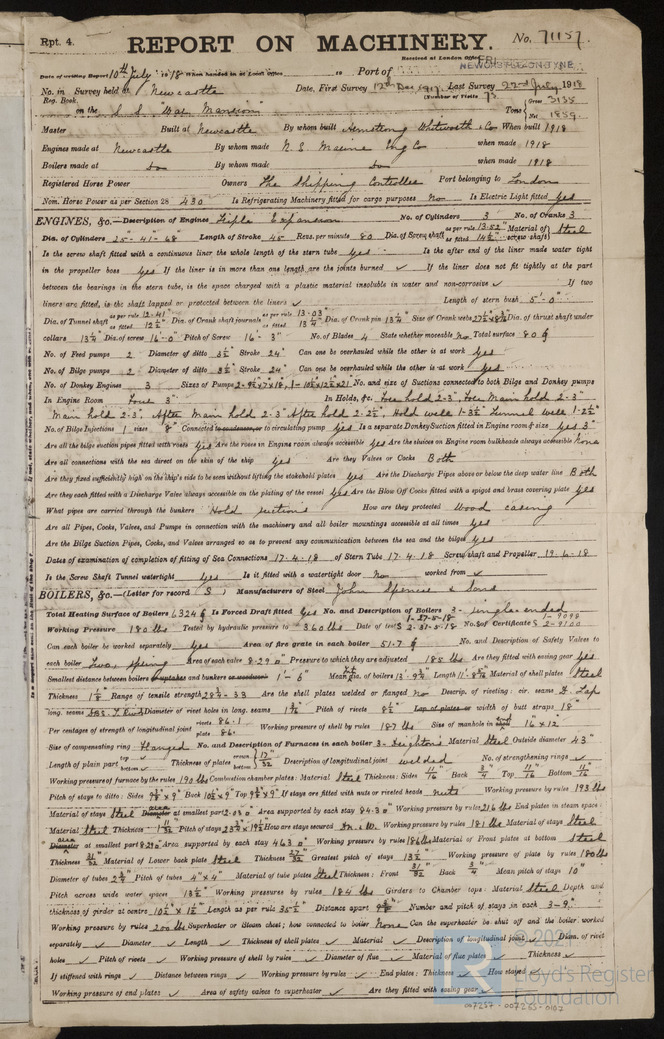 Rpt. 4.
REPORT ON MACHINERY.
No. 71157.
Received at London Office
NEWCASTLE-ON-TYNE
Date of writing Report 10th July 1918 When handed in at Local Office 19 Port of
No. in Survey held at Newcastle Date, First Survey 12th Dec 1917 Last Survey 22nd July 1918
Reg. Book. (Number of Visits 73
on the S.S. "War Mansion" Tons Gross 3135 Net 1859.
Master Built at Newcastle By whom built Armstrong Whitworth & Co When built 1918
Engines made at Newcastle By whom made N. E. Marine Eng Co when made 1918
Boilers made at do By whom made do when made 1918
Registered Horse Power Owners The Shipping Controller Port belonging to London
Nom. Horse Power as per Section 28 430 Is Refrigerating Machinery fitted for cargo purposes No Is Electric Light fitted Yes
ENGINES, &c.—Description of Engines Triple Expansion No. of Cylinders 3 No. of Cranks 3
Dia. of Cylinders 25"-41"-68" Length of Stroke 45 Revs. per minute 80 Dia. of Screw shaft as per rule 13.52" as fitted 14½" Material of screw shaft Steel
Is the screw shaft fitted with a continuous liner the whole length of the stern tube Yes Is the after end of the liner made water tight
in the propeller boss Yes If the liner is in more than one length are the joints burned ✓ If the liner does not fit tightly at the part
between the bearings in the stern tube, is the space charged with a plastic material insoluble in water and non-corrosive ✓ If two
liners are fitted, is the shaft lapped or protected between the liners ✓ Length of stern bush 5'-0"
Dia. of Tunnel shaft as per rule 12.41" as fitted 12½" Dia. of Crank shaft journals as per rule 13.03" as fitted 13¼" Dia. of Crank pin 13¼" Size of Crank webs Dia. of thrust shaft under
collars 13¼" Dia. of screw 16'-0" Pitch of Screw 16'-3" No. of Blades 4 State whether moveable No Total surface 80
No. of Feed pumps 2 Diameter of ditto 3½" Stroke 24" Can one be overhauled while the other is at work Yes
No. of Bilge pumps 2 Diameter of ditto 3½" Stroke 24" Can one be overhauled while the other is at work Yes
No. of Donkey Engines 3 Sizes of Pumps No. and size of Suctions connected to both Bilge and Donkey pumps
In Engine Room Four 3" In Holds, &c. Fore hold 2-3", Fore Main hold 2-3"
Main hold 2-3" After Main hold 2-3" After hold 2-2½", Hold well 1-3½" Tunnel well 1-2½"
No. of Bilge Injections 1 sizes 8" Connected to condenser, or to circulating pump Yes Is a separate Donkey Suction fitted in Engine room & size Yes 3"
Are all the bilge suction pipes fitted with roses Yes Are the roses in Engine room always accessible Yes Are the sluices on Engine room bulkheads always accessible None
Are all connections with the sea direct on the skin of the ship Yes Are they Valves or Cocks Both
Are they fixed sufficiently high on the ship's side to be seen without lifting the stokehold plates Yes Are the Discharge Pipes above or below the deep water line Both
Are they each fitted with a Discharge Valve always accessible on the plating of the vessel Yes Are the Blow Off Cocks fitted with a spigot and brass covering plate Yes
What pipes are carried through the bunkers Hold suctions How are they protected Wood casing
Are all Pipes, Cocks, Valves, and Pumps in connection with the machinery and all boiler mountings accessible at all times Yes
Are the Bilge Suction Pipes, Cocks, and Valves arranged so as to prevent any communication between the sea and the bilges Yes
Dates of examination of completion of fitting of Sea Connections 17-4-18 of Stern Tube 17.4.18 Screw shaft and Propeller 19.6-18
Is the Screw Shaft Tunnel watertight Yes Is it fitted with a watertight door No worked from ✓
BOILERS, &c.—(Letter for record S) Manufacturers of Steel John Spencer & Sons
Total Heating Surface of Boilers 6324 Is Forced Draft fitted Yes No. and Description of Boilers 3- single-ended
Working Pressure 180 lbs Tested by hydraulic pressure to 360 lbs Date of test 1-27-5-18 2-31-5-18 No. of Certificate 1-9098 2-9100
Can each boiler be worked separately Yes Area of fire grate in each boiler 51.7 No. and Description of Safety Valves to
each boiler Two, spring Area of each valve 8.29 Pressure to which they are adjusted 185 lbs Are they fitted with easing gear Yes
Smallest distance between boilers or uptakes and bunkers or woodwork 1'-6" Mean dia. of boilers 13-9¼ Length Material of shell plates Steel
Thickness Range of tensile strength 28½-33 Are the shell plates welded or flanged No Descrip. of riveting: cir. seams D. Lap
long. seams Diameter of rivet holes in long. seams Pitch of rivets 8½" Lap of plates or width of butt straps 18"
Per centages of strength of longitudinal joint rivets 86.1 plate 86. Working pressure of shell by rules 187 lbs Size of manhole in shell 16"×12"
Size of compensating ring Flanged No. and Description of Furnaces in each boiler 3-Deightons Material Steel Outside diameter 43"
Length of plain part top bottom Thickness of plates crown bottom 17/32" Description of longitudinal joint welded No. of strengthening rings ✓
Working pressure of furnace by the rules 190 lbs Combustion chamber plates: Material Steel Thickness: Sides 11/16 Back 3/4" Top 11/16" Bottom 11/16"
Pitch of stays to ditto: Sides Back Top If stays are fitted with nuts or riveted heads nuts Working pressure by rules 193 lbs
Material of stays Steel area Diameter at smallest part 2.03 Area supported by each stay 84.30" Working pressure by rules 216 lbs End plates in steam space:
Material Steel Thickness Pitch of stays How are stays secured Working pressure by rules 181 lbs Material of stays Steel
area Diameter at smallest part 8.29 Area supported by each stay 463 Working pressure by rules 186 lbs Material of Front plates at bottom Steel
Thickness 31/32" Material of Lower back plate Steel Thickness 27/32" Greatest pitch of stays 13½" Working pressure of plate by rules 180 lbs
Diameter of tubes 2¾" Pitch of tubes 4"×4" Material of tube plates Steel Thickness: Front 31/32" Back 3/4" Mean pitch of stays 10"
Pitch across wide water spaces 13½" Working pressures by rules 184 lbs Girders to Chamber tops: Material Steel Depth and
thickness of girder at centre 10½" × 1½" Length as per rule 35½" Distance apart Number and pitch of stays in each 3-9"
Working pressure by rules 200 lbs Superheater or Steam chest; how connected to boiler None Can the superheater be shut off and the boiler worked
separately ✓ Diameter ✓ Length ✓ Thickness of shell plates ✓ Material ✓ Description of longitudinal joint ✓ Diam. of rivet
holes ✓ Pitch of rivets ✓ Working pressure of shell by rules ✓ Diameter of flue ✓ Material of flue plates ✓ Thickness ✓
If stiffened with rings ✓ Distance between rings ✓ Working pressure by rules ✓ End plates: Thickness ✓ How stayed ✓
Working pressure of end plates ✓ Area of safety valves to superheater ✓ Are they fitted with easing gear ✓
© 2021
Lloyd's Register
Foundation
007257-007265-0102